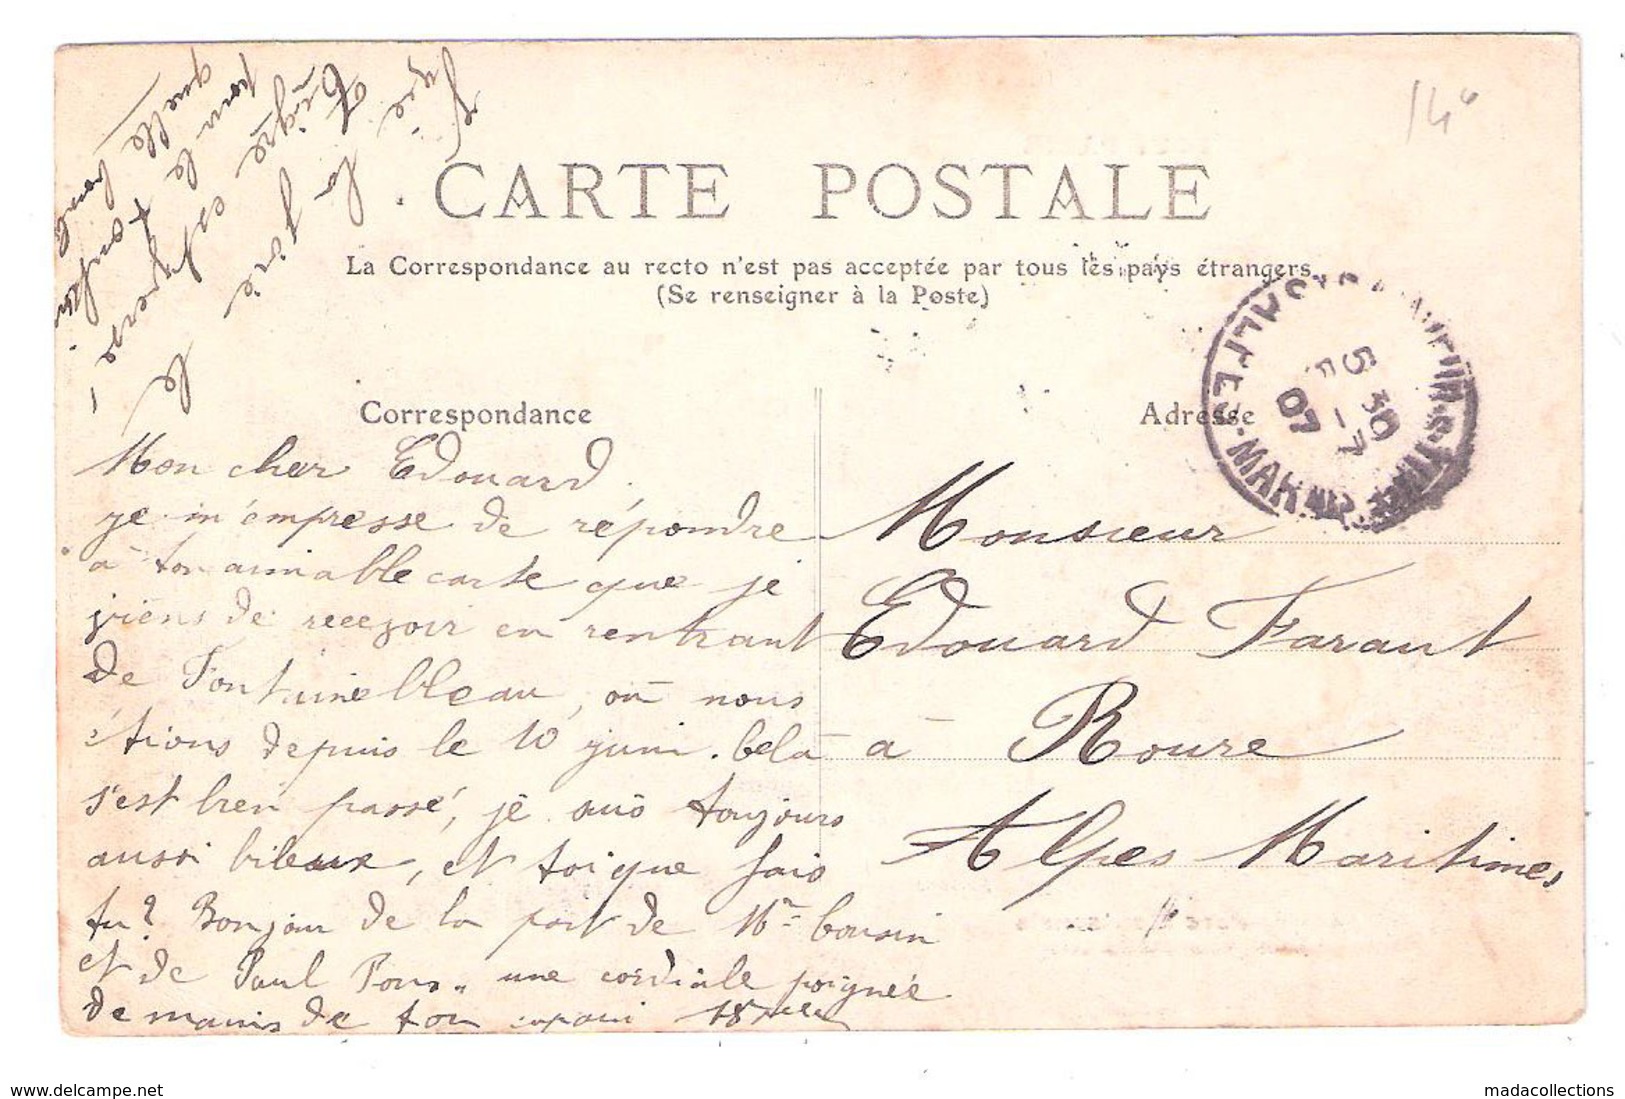 14
CARTE POSTALE
La Correspondance au recto n'est pas acceptée par tous les pays étrangers
(Se renseigner à la Poste)
Correspondance
Adresse
5 30
F - 7
07
Mon cher Edouard,
je m'empresse de répondre
à ton aimable carte que je
viens de recevoir en rentrant
de Fontainebleau, où nous
étions depuis le 10 juin. Celà
s'est bien passé, je suis toujours
aussi bileux, et toi que fais
tu? Bonjour de la part de Mr Cousin
et de Paul Pons, une cordiale poignée
de mains de ton copain
Monsieur
Edouard Faraut
à Roure
Alpes Maritimes
le
la Joie
est
pour le
quelle
www.delcampe.net
madacollections